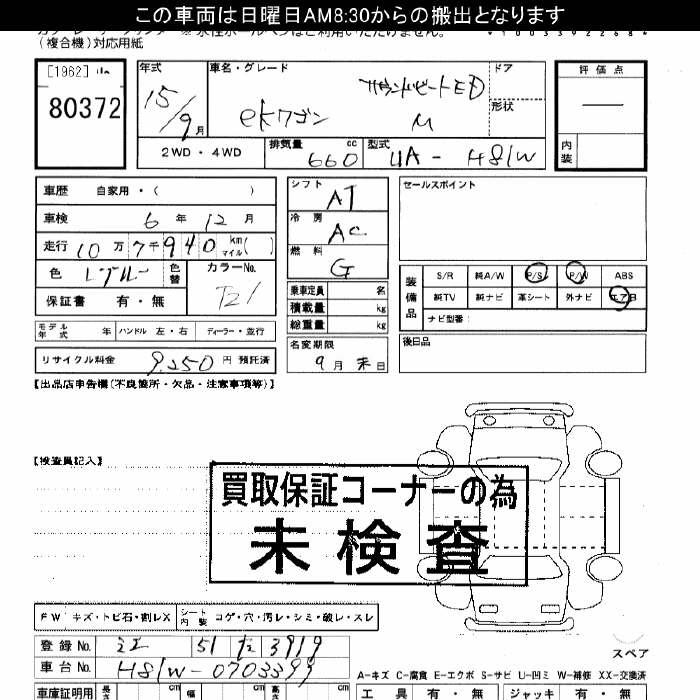 この車両は日曜日AM8:30からの搬出となります
(複合機)対応用紙
[1962]
80372
年式
15/9月
車名・グレード
サウンドビートED
eKワゴン M
ドア
形状
評価点
内装
2WD・4WD
排気量 660 cc
型式 UA-H81W
車歴 自家用・( )
車検 6年12月
走行 10万7千940km マイル( )
色
色替
カラーNo.
保証書 有・無
モデル年式 年 ハンドル 左・右 ディーラー・並行
リサイクル料金 9,250円 預託済
シフト AT
冷房 AC
燃料 G
乗車定員 名
積載量 kg
総重量 kg
名変期限
9月末日
セールスポイント
装備品
S/R 純A/W P/S P/W ABS
純TV 純ナビ 革シート 外ナビ エアB
ナビ型番:
後日品
【出品店申告欄(不良箇所・欠品・注意事項等)】
【検査員記入】
買取保証コーナーの為
未検査
FW キズ・トビ石・割レX
シート内装 コゲ・穴・汚レ・シミ・破レ・スレ
登録No. 51 3919
車台No. H81W-0703399
スペア
A-キズ C-腐食 E-エクボ S-サビ U-凹ミ W-補修 XX-交換済
車庫証明用 長さ cm 幅 cm 高さ cm
工具 有・無 ジャッキ 有・無